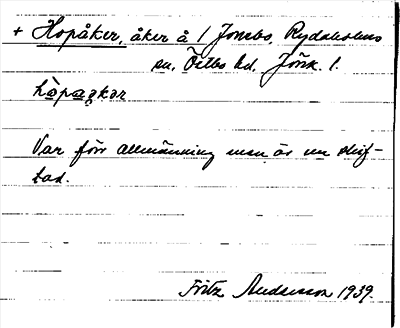 + Hopåker, åker å 1 Jonsbo, Rydaholms
sn, Östbo hd, Jönk. l.
hòpaakar
Var förr allmänning men är nu skif-
tad.
Fritz Andersson 1939.